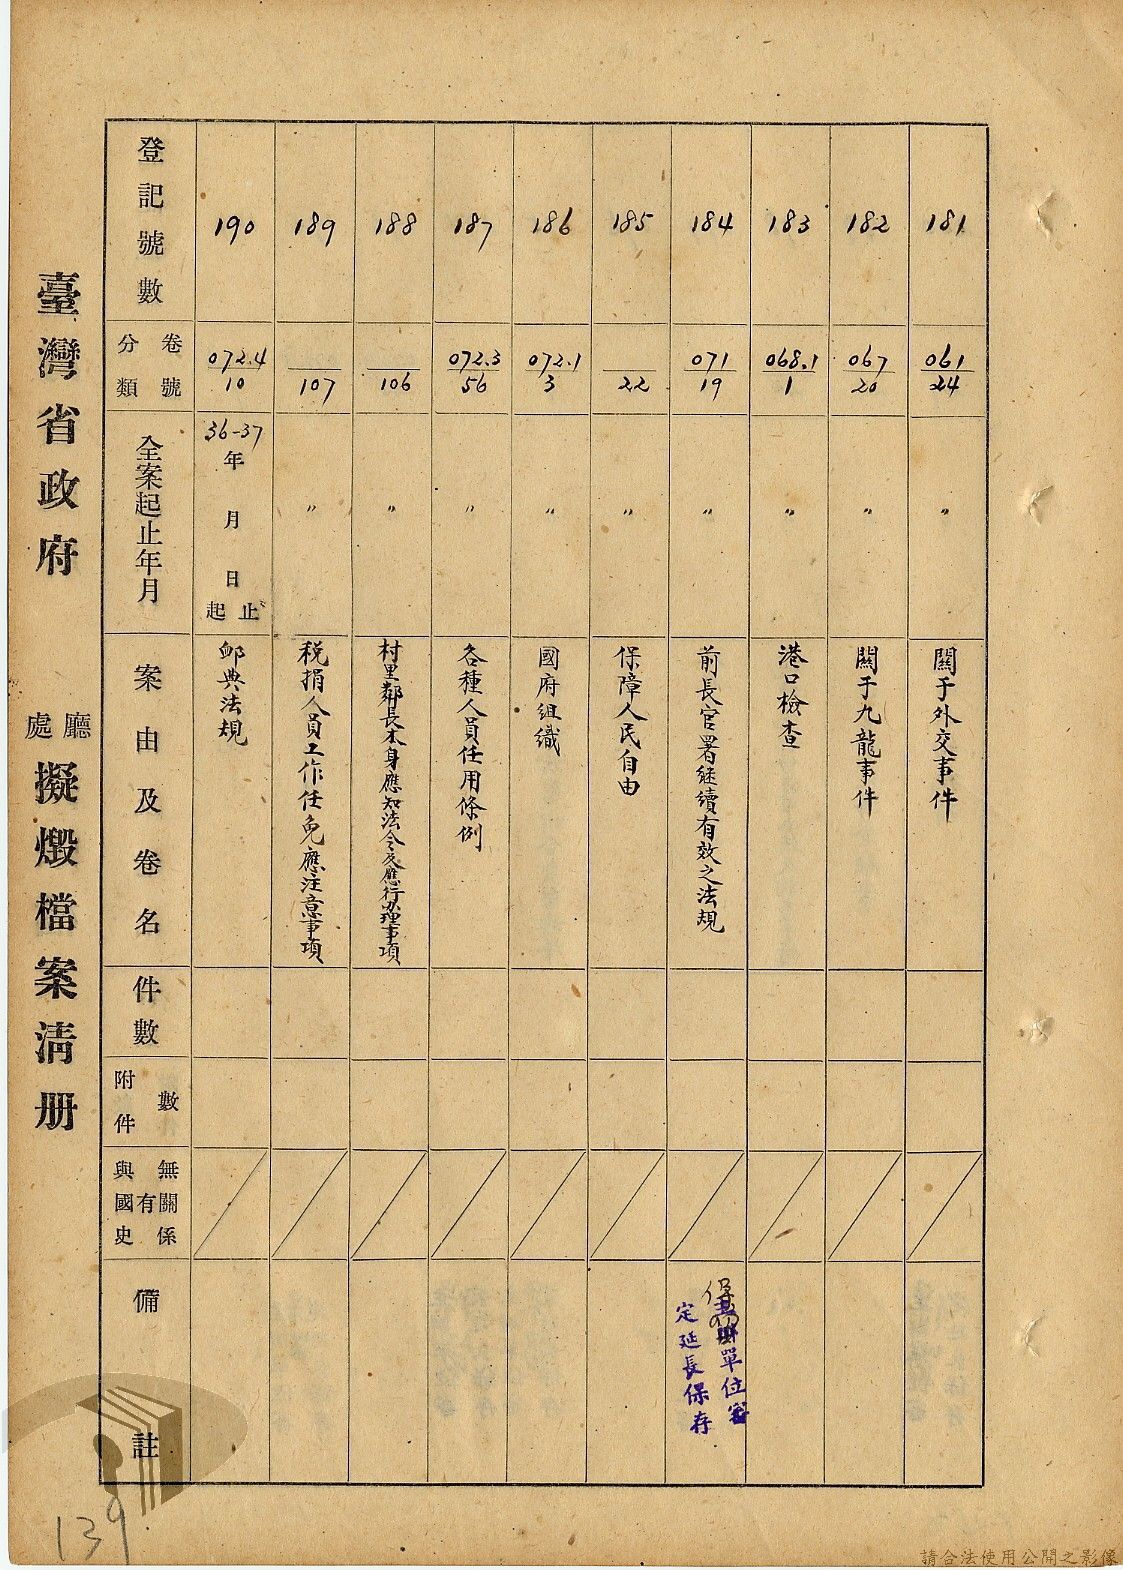 登記號數
卷號
分類
全案起止年月
案由及卷名
件數
附件數
與國史有無關係
備註
181
061
24
〃
關于外交事件
182
067
20
〃
關于九龍事件
183
068.1
1
〃
港口檢查
184
071
19
〃
前長官署繼續有效之法規
單位審
定延長保存
185
22
〃
保障人民自由
186
072.1
3
〃
國府組織
187
072.3
56
〃
各種人員任用條例
188
106
〃
村里鄰長本身應知法令及應行办理事項
189
107
〃
稅捐人員工作任免應注意事項
190
072.4
10
36-37
年
月
日
起止
卹典法規
臺灣省政府 廳處 擬燬檔案清册
139
請合法使用公開之影像